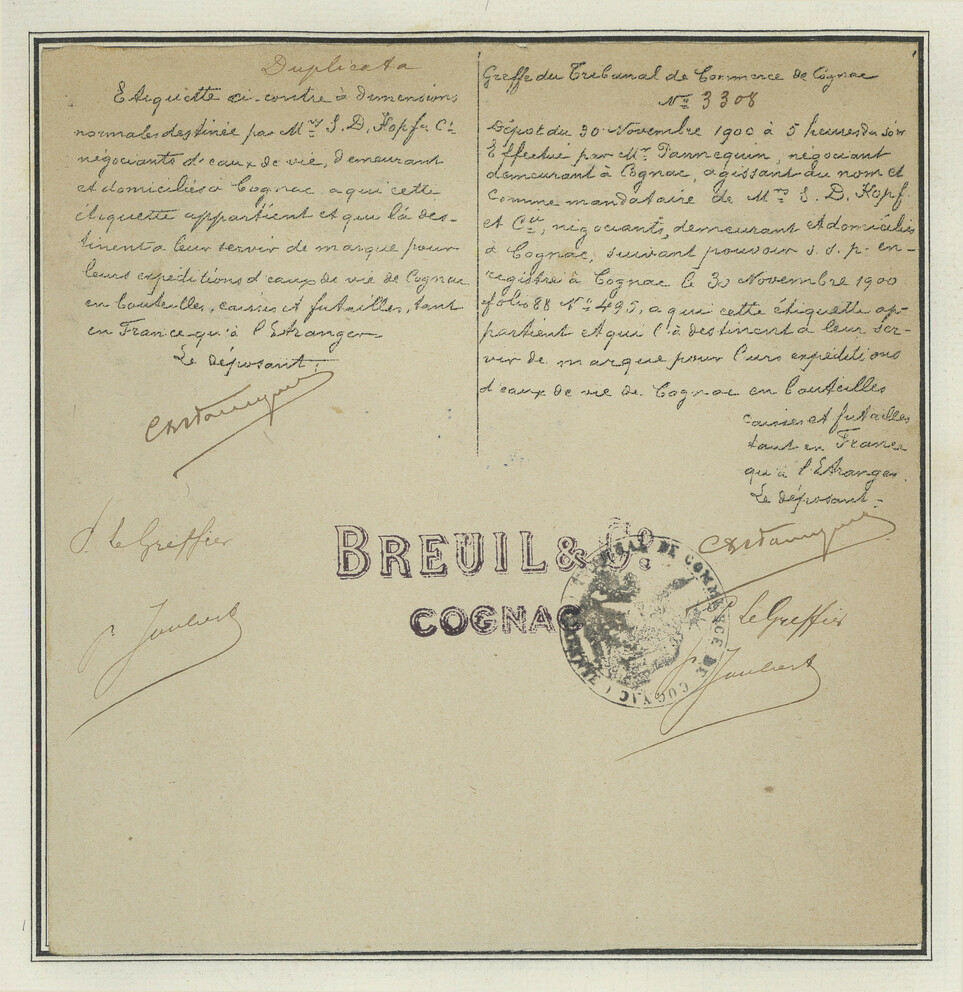 Duplicata
Etiquette ci-contre à dimensions
normales destinée par Mrs S. D. Hopf & Cie
négociants d'eaux de vie, demeurant
et domiciliés à Cognac a qui cette
étiquette appartient et qui là des-
tinent a leur servir de marque pour
leurs expéditions d'eaux de vie de Cognac
en bouteilles, caisses et futailles, tant
en France qu'à l'Etranger
Le déposant.
P. Le Greffier
P. Joubert
Greffe du Tribunal de Commerce de Cognac
No 3308
Dépôt du 30 Novembre 1900 à 5 heures du soir
Effectué par Mr Tannequin, négociant
demeurant à Cognac, agissant au nom et
comme mandataire de Mrs S. D. Hopf
et Cie, négociants, demeurant et domiciliés
à Cognac, suivant pouvoir s. s. p. en-
registré à Cognac le 30 Novembre 1900
folio 88 No 495, a qui cette étiquette ap-
partient et qui l'à destinent a leur ser-
vir de marque pour leurs expéditions
d'eaux de vie de Cognac en bouteilles
caisses et futailles
tant en France
qu'à l'Etranger.
Le déposant.
P. Le Greffier
P. Joubert
BREUIL & Co.
COGNAC
TRIBUNAL DE COMMERCE DE COGNAC